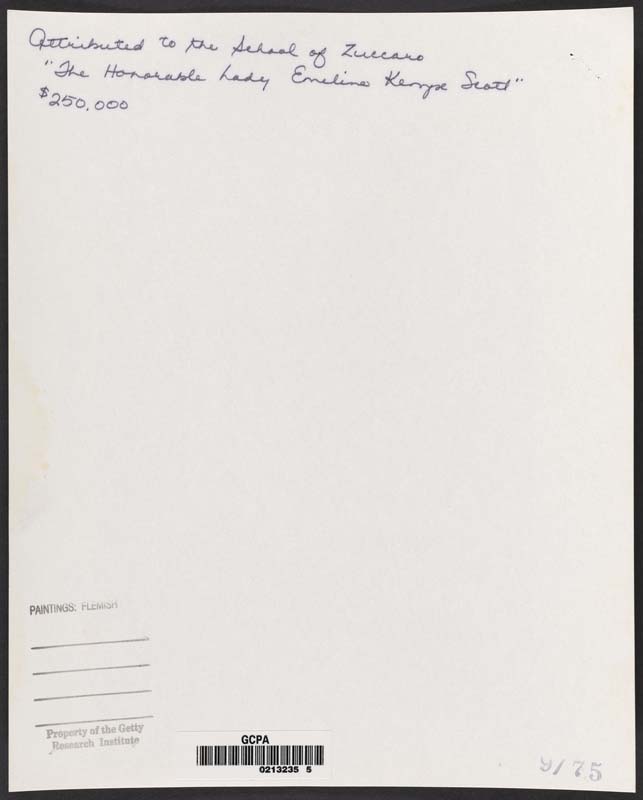 Attributed to the School of Zuccaro
"The Honorable Lady Emeline Kempe Scott"
$250,000
PAINTINGS: FLEMISH
Property of the Getty
Research Institute
GCPA
0213235 5
9/75